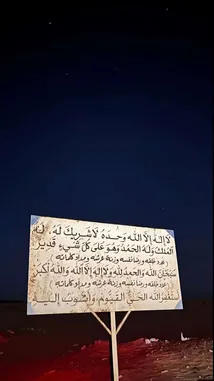 لَا إِلَهَ إِلَّا اللَّه وَحْدَهُ لَا شَرِيكَ لَهُ. لَهُ
المُلْكُ وَلَهُ الحَمْدُ وَهُوَ عَلَى كُلِّ شَيْءٍ قَدِيرٌ
(عدد خلقه ورضا نفسه وزنة عرشه ومداد كلماته)
سُبْحَانَ اللَّه وَالحَمْدُ لِلَّه وَلَا إِلَهَ إِلَّا اللَّه وَاللَّهُ أَكْبَرُ
(عدد خلقه ورضا نفسه وزنة عرشه ومداد كلماته)
أَسْتَغْفِرُ اللَّه الحَيَّ القَيُّومَ وَأَتُوبُ إِلَيهِ